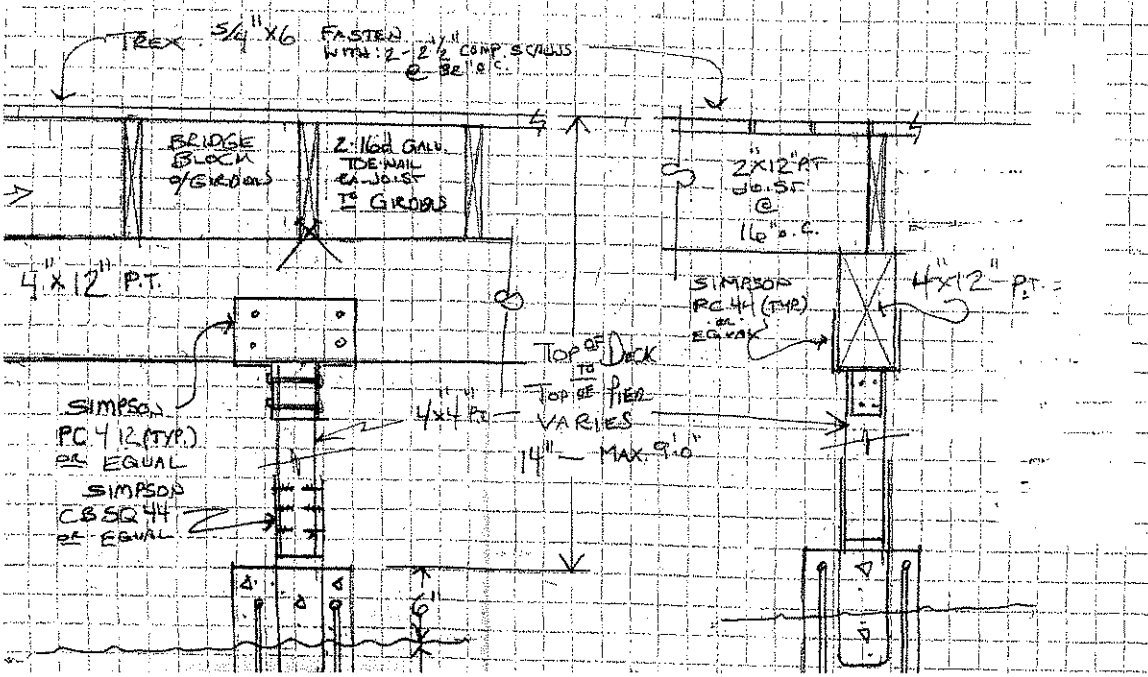 TREX 5/4"X6 FASTEN
WITH 2-2 1/2" COMP. SCREWS
BRIDGE
BLOCK
O/GIRDERS
2-16d GALV.
TOE NAIL
EA. JOIST
TO GIRDERS
2"X12" P.T.
JOIST
@
16" O.C.
4"X12" P.T.
SIMPSON
PC 44 (TYP.)
OR
EQUAL
4"X12" P.T.
TOP OF DECK
TO
TOP OF PIER
VARIES
14" — MAX. 9'.0"
4"X4" P.T.
SIMPSON
PC 412 (TYP.)
OR EQUAL
SIMPSON
CBSQ 44
OR EQUAL
6"